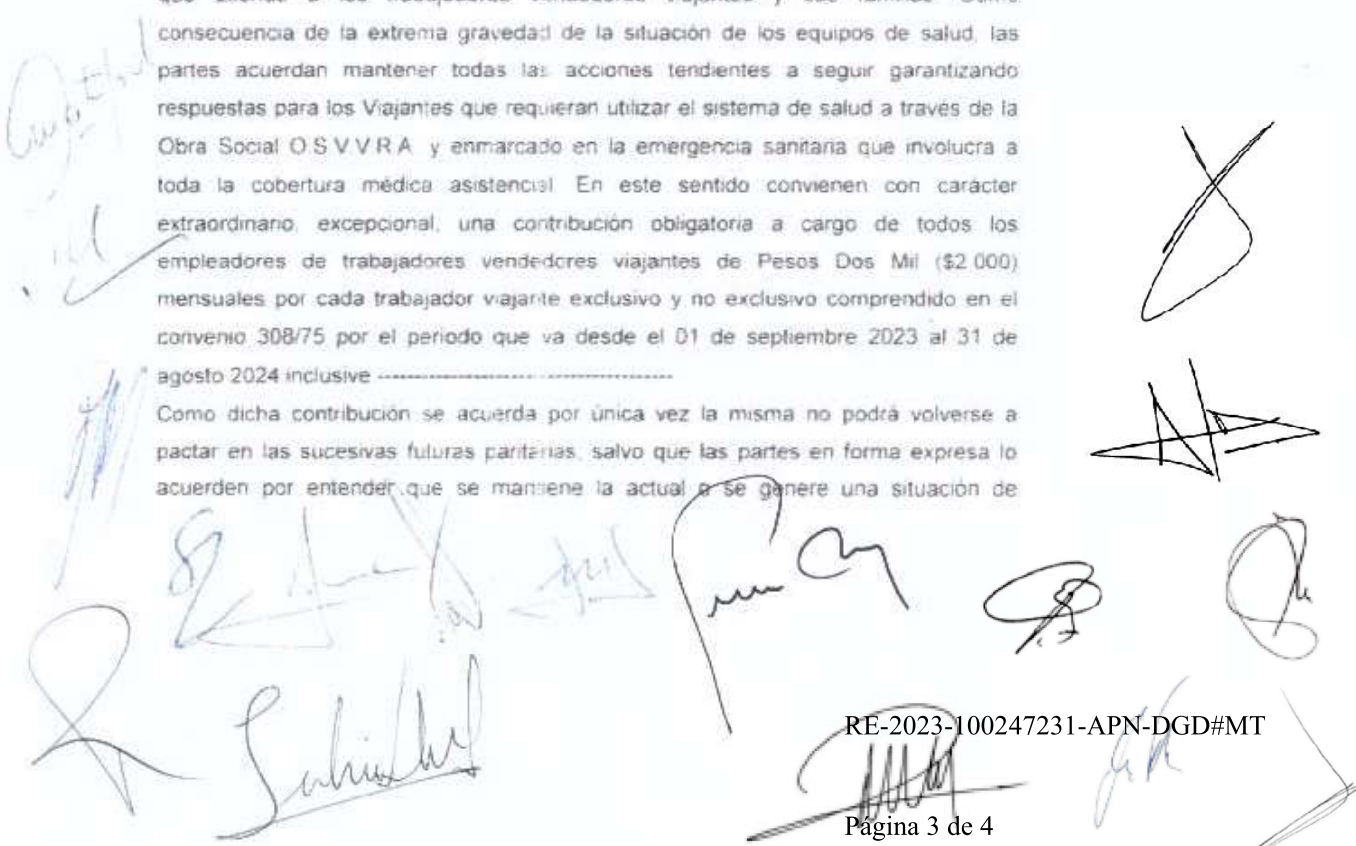 consecuencia de la extrema gravedad de la situación de los equipos de salud, las
partes acuerdan mantener todas las acciones tendientes a seguir garantizando
respuestas para los Viajantes que requieran utilizar el sistema de salud a través de la
Obra Social O S V V R A y enmarcado en la emergencia sanitaria que involucra a
toda la cobertura médica asistencial En este sentido convienen con carácter
extraordinario, excepcional, una contribución obligatoria a cargo de todos los
empleadores de trabajadores vendedores viajantes de Pesos Dos Mil ($2 000)
mensuales por cada trabajador viajante exclusivo y no exclusivo comprendido en el
convenio 308/75 por el periodo que va desde el 01 de septiembre 2023 al 31 de
agosto 2024 inclusive ----------------------------------------
Como dicha contribución se acuerda por única vez la misma no podrá volverse a
pactar en las sucesivas futuras paritarias, salvo que las partes en forma expresa lo
acuerden por entender que se mantiene la actual o se genere una situación de
RE-2023-100247231-APN-DGD#MT
Página 3 de 4